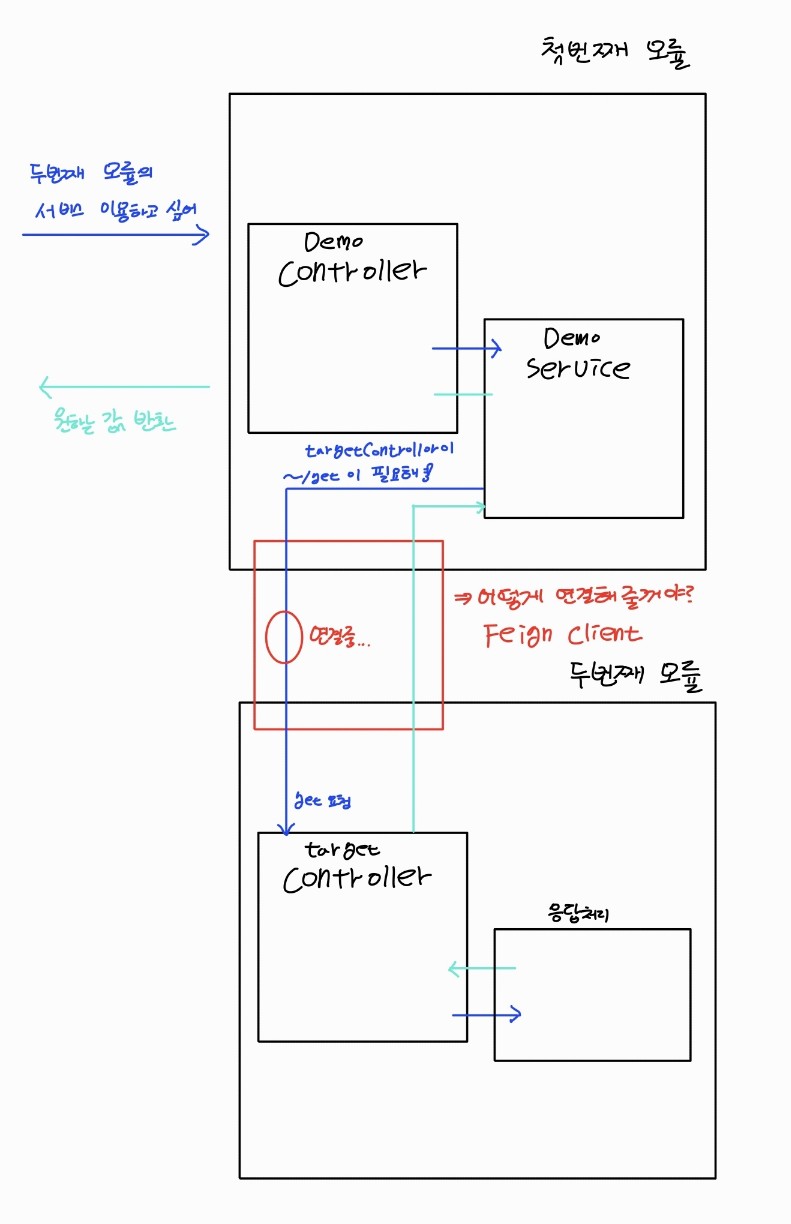 첫번째 모듈
두번째 모듈의
서비스 이용하고 싶어
Demo
Controller
Demo
Service
원하는 값 반환
targetControll아이
~/get 이 필요해
⇒ 어떻게 연결해 줄꺼야?
연결중...
Feign Client
두번째 모듈
get 요청
target
Controller
응답처리